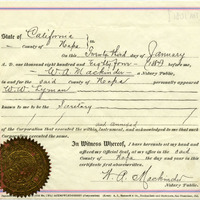 State of California
County of Napa } ss.
On this day of January
A. D. one thousand eight hundred and Eighty four before me,
W. A. Mackinder a Notary Public,
in and for the said County of Napa personally appeared
W. W. Lyman
known to me to be the Secretary
of the Corporation that executed the within instrument, and acknowledged to me that
executed the same.
In Witness Whereof, I have hereunto set my hand and
affixed my Official Seal, at my office in the said
County of Napa the day and year in this
certificate first above written.
W. A. Mackinder
Notary Public.